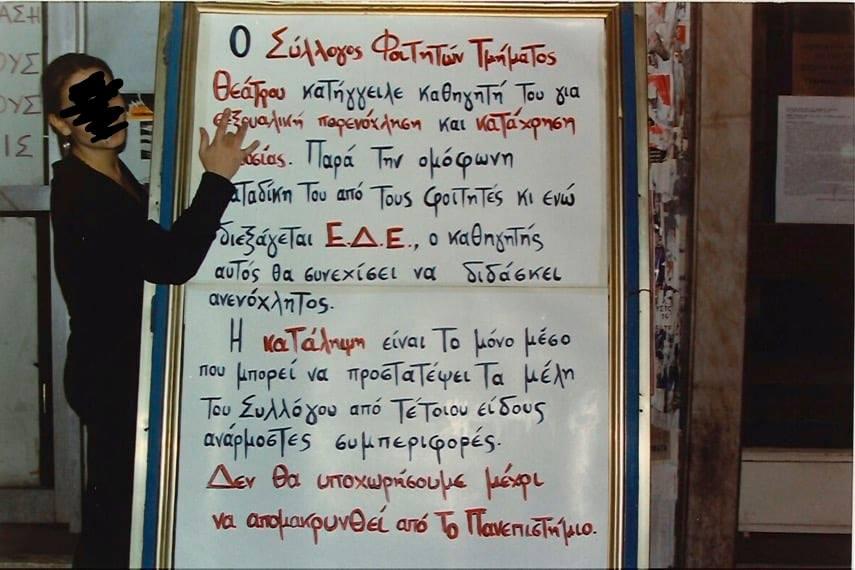 ΑΣΗ
ΟΥΣ
ΟΥΣ
ΙΣ
Ο Σύλλογος Φοιτητών Τμήματος
Θεάτρου κατήγγειλε καθηγητή του για
σεξουαλική παρενόχληση και κατάχρηση
σίας. Παρά την ομόφωνη
καταδίκη του από τους φοιτητές κι ενώ
διεξάγεται Ε.Δ.Ε., ο καθηγητής
αυτός θα συνεχίσει να διδάσκει
ανενόχλητος.
Η κατάληψη είναι το μόνο μέσο
που μπορεί να προστατέψει τα μέλη
του Συλλόγου από τέτοιου είδους
ανάρμοστες συμπεριφορές.
Δεν θα υποχωρήσουμε μέχρι
να απομακρυνθεί από το Πανεπιστήμιο.